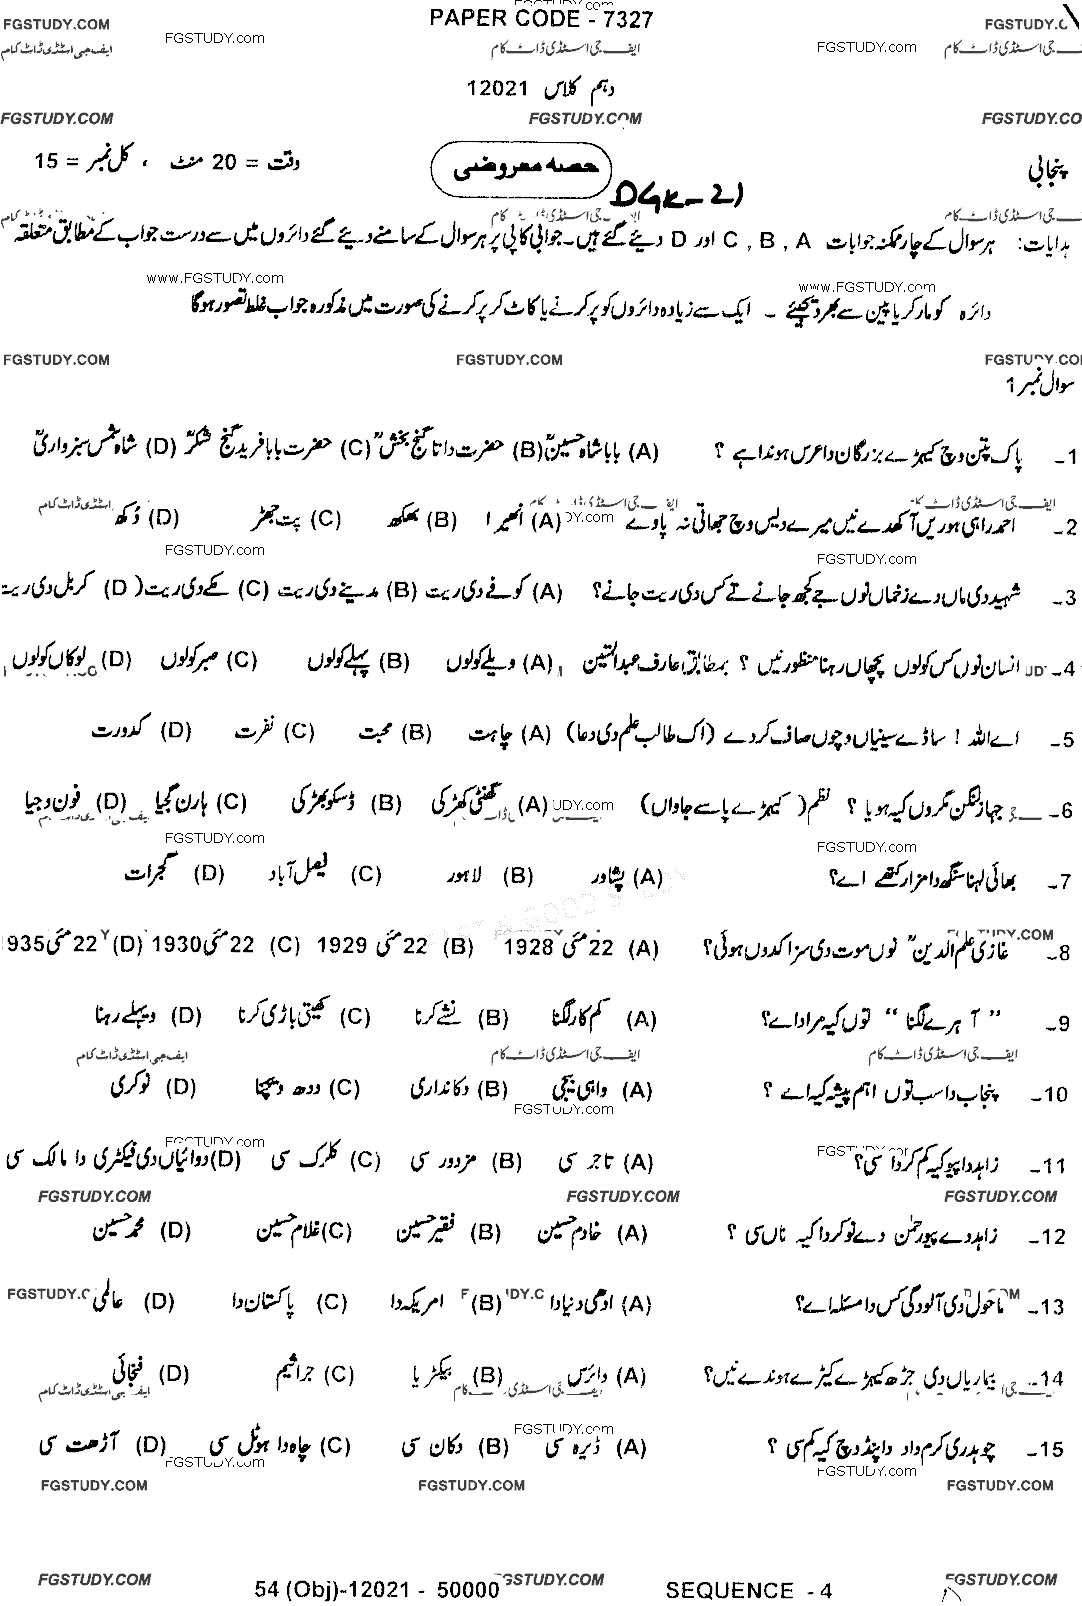 PAPER CODE - 7327
FGSTUDY.COM FGSTUDY.com FGSTUDY.com
ایف جی اسٹڈی ڈاٹ کام ایف جی اسٹڈی ڈاٹ کام
دہم کلاس 12021
FGSTUDY.COM FGSTUDY.COM FGSTUDY.CO
پنجابی حصہ معروضی وقت = 20 منٹ ، کل نمبر = 15
DGK-21
ہدایات: ہر سوال کے چار ممکنہ جوابات A , B , C اور D دیئے گئے ہیں۔ جوابی کاپی پر ہر سوال کے سامنے دیئے گئے دائروں میں سے درست جواب کے مطابق متعلقہ
www.FGSTUDY.com www.FGSTUDY.com
دائرہ کو مارکر یا پین سے بھر دیجیئے ۔ ایک سے زیادہ دائروں کو پر کرنے یا کاٹ کر پر کرنے کی صورت میں مذکورہ جواب غلط تصور ہوگا
FGSTUDY.COM FGSTUDY.COM FGSTUDY.COM
سوال نمبر 1
1۔ پاک پتن وچ کیہڑے بزرگان دا عرس ہوندا ہے ؟ (A) بابا شاہ حسینؒ (B) حضرت داتا گنج بخشؒ (C) حضرت بابا فرید گنج شکرؒ (D) شاہ شمس سبزواریؒ
2۔ احمد راہی ہوریں آکھدے نیں میرے دیس وچ جھاتی نہ پاوے (A) انھیرا (B) بھکھ (C) پت جھڑ (D) دُکھ
FGSTUDY.com FGSTUDY.com
3۔ شہید دی ماں دے زخماں نوں جے کجھ جانے تے کس دی ریت جانے؟ (A) کوفے دی ریت (B) مدینے دی ریت (C) مکے دی ریت (D) کربل دی ریت
4۔ انسان نوں کس کولوں پچھاں رہنا منظور نیں ؟ بمطابق عارف عبدالمتین (A) ویلے کولوں (B) پہلے کولوں (C) صبر کولوں (D) لوکاں کولوں
5۔ اے اللہ ! ساڈے سینیاں وچوں صاف کر دے (اک طالب علم دی دعا) (A) چاہت (B) محبت (C) نفرت (D) کدورت
6۔ جہاز لنگن مگروں کیہ ہویا ؟ نظم (کیہڑے پاسے جاواں) (A) گھنٹی کھڑکی (B) ڈسکو بھڑکی (C) ہارن گجیا (D) فون وجیا
FGSTUDY.com FGSTUDY.com
7۔ بھائی لہنا سنگھ دا مزار کتھے اے؟ (A) پشاور (B) لاہور (C) فیصل آباد (D) گجرات
8۔ غازی علم الدینؒ نوں موت دی سزا کدوں ہوئی؟ (A) 22 مئی 1928 (B) 22 مئی 1929 (C) 22 مئی 1930 (D) 22 مئی 1935
9۔ ”آہرے لگنا“ توں کیہ مراد اے؟ (A) کم کار لگنا (B) نشے کرنا (C) کھیتی باڑی کرنا (D) ویہلے رہنا
ایف جی اسٹڈی ڈاٹ کام ایف جی اسٹڈی ڈاٹ کام ایف جی اسٹڈی ڈاٹ کام
10۔ پنجاب دا سب توں اہم پیشہ کیہ اے ؟ (A) واہی بیجی (B) دکانداری (C) ددھ ویچنا (D) نوکری
FGSTUDY.com
11۔ زاہد دا پیو کیہ کم کردا سی؟ (A) تاجر سی (B) مزدور سی (C) کلرک سی (D) دوائیاں دی فیکٹری دا مالک سی
FGSTUDY.COM FGSTUDY.COM FGSTUDY.COM
12۔ زاہد دے پیو رحمٰن دے نوکر دا کیہ ناں سی ؟ (A) خادم حسین (B) فقیر حسین (C) غلام حسین (D) محمد حسین
13۔ ماحول دی آلودگی کس دا مسئلہ اے؟ (A) ادھی دنیا دا (B) امریکہ دا (C) پاکستان دا (D) عالمی
14۔ بیماریاں دی جڑھ کیہڑے کیڑے ہوندے نیں؟ (A) وائرس (B) بیکٹریا (C) جراثیم (D) فنجائی
FGSTUDY.com
15۔ چوہدری کرم داد دا پنڈ وچ کیہ کم سی ؟ (A) ڈیرہ سی (B) دکان سی (C) چاہ دا ہوٹل سی (D) آڑھت سی
FGSTUDY.com FGSTUDY.com
FGSTUDY.COM FGSTUDY.COM FGSTUDY.COM
FGSTUDY.COM FGSTUDY.COM FGSTUDY.COM
54 (Obj)-12021 - 50000 SEQUENCE - 4